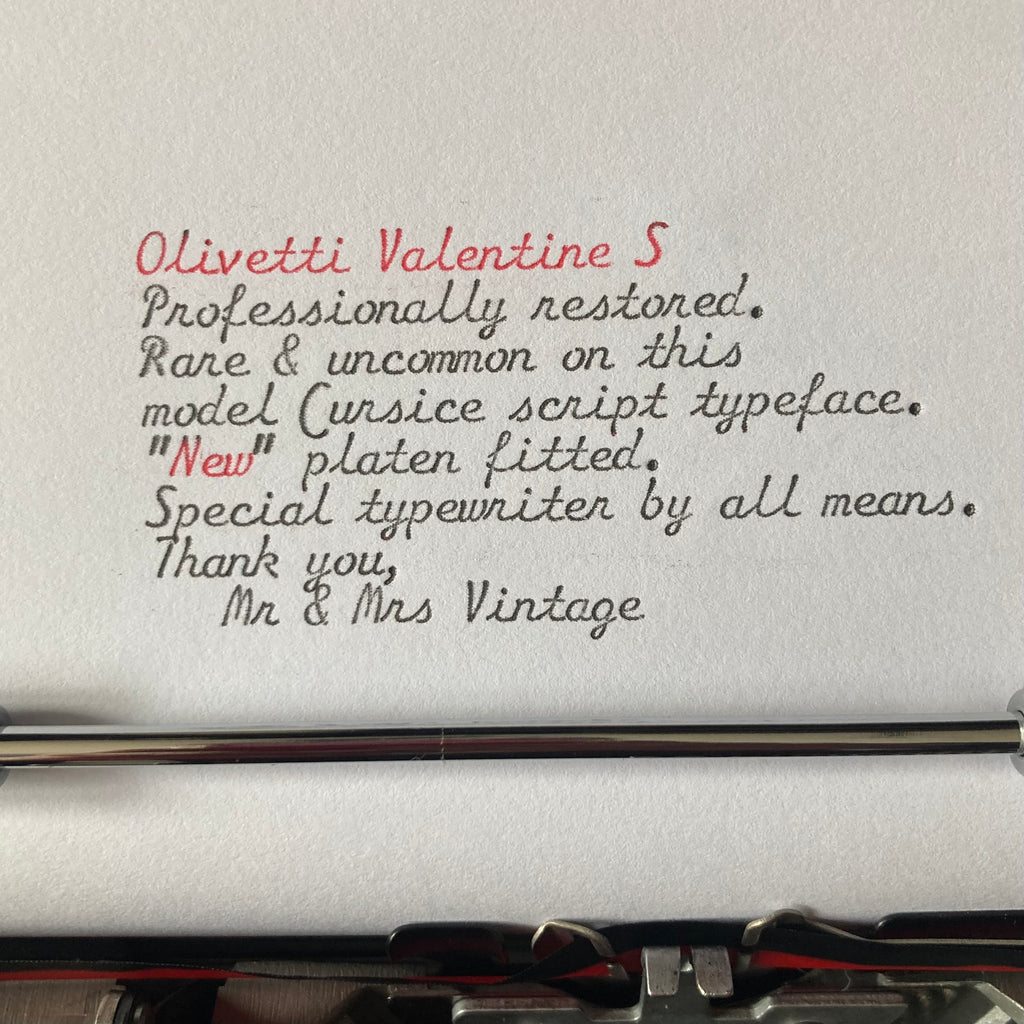 Olivetti Valentine S
Professionally restored.
Rare & uncommon on this
model Cursice script typeface.
"New" platen fitted.
Special typewriter by all means.
Thank you,
Mr & Mrs Vintage